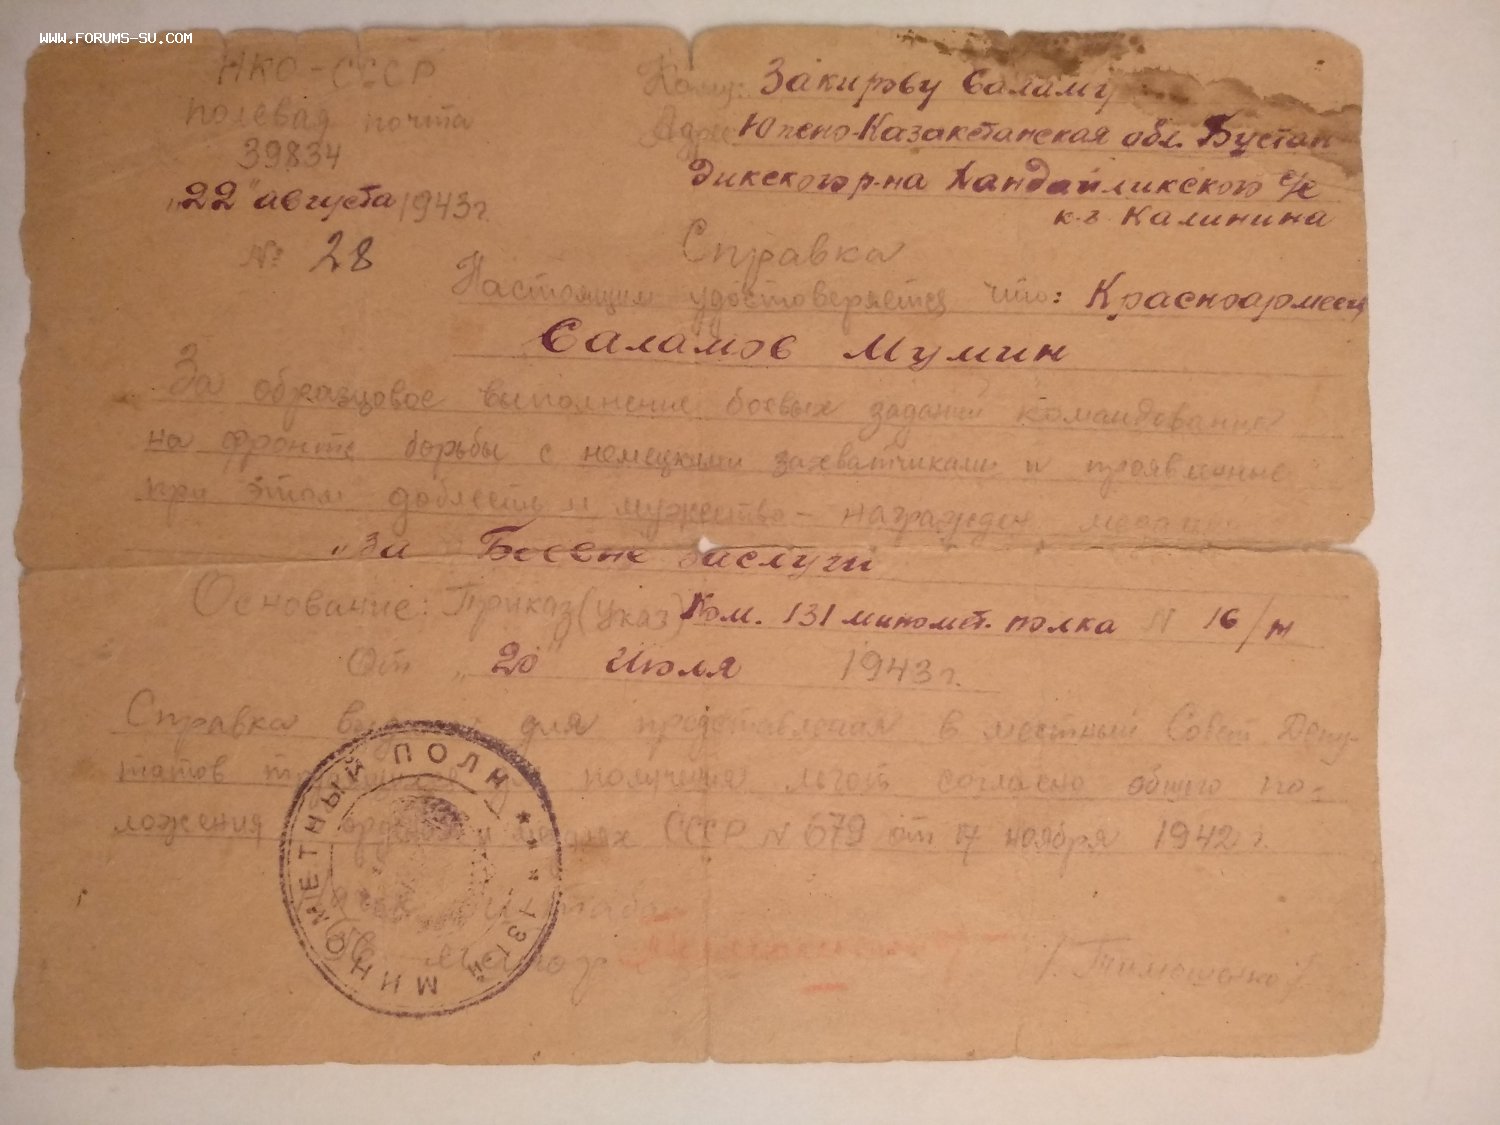 WWW.FORUMS-SU.COM
НКО-СССР
полевая почта
39834
"22" августа 1943г.
№ 28
Кому: Закирову Саламу
Адрес Южно-Казакстанская обл. Бустан
дикского р-на Хандайликского с/с
к-з Калинина
Справка
Настоящим удостоверяется что: Красноармеец
Саламов Мумин
За образцовое выполнение боевых заданий командования
на фронте борьбы с немецкими захватчиками и проявленные
при этом доблесть и мужество – награжден
"За Боевые заслуги
Основание: Приказ (Указ) Ком. 131 миномет. полка N 16/н
От "20" Июля 1943г.
Справка выдана для представления в местный Совет Депу-
татов получения льгот согласно общего по-
ложения орденах и медалях СССР N 679 от 17 ноября 1942 г.
штаба
майор /Тимошенко/
131й МИНОМЕТНЫЙ ПОЛК